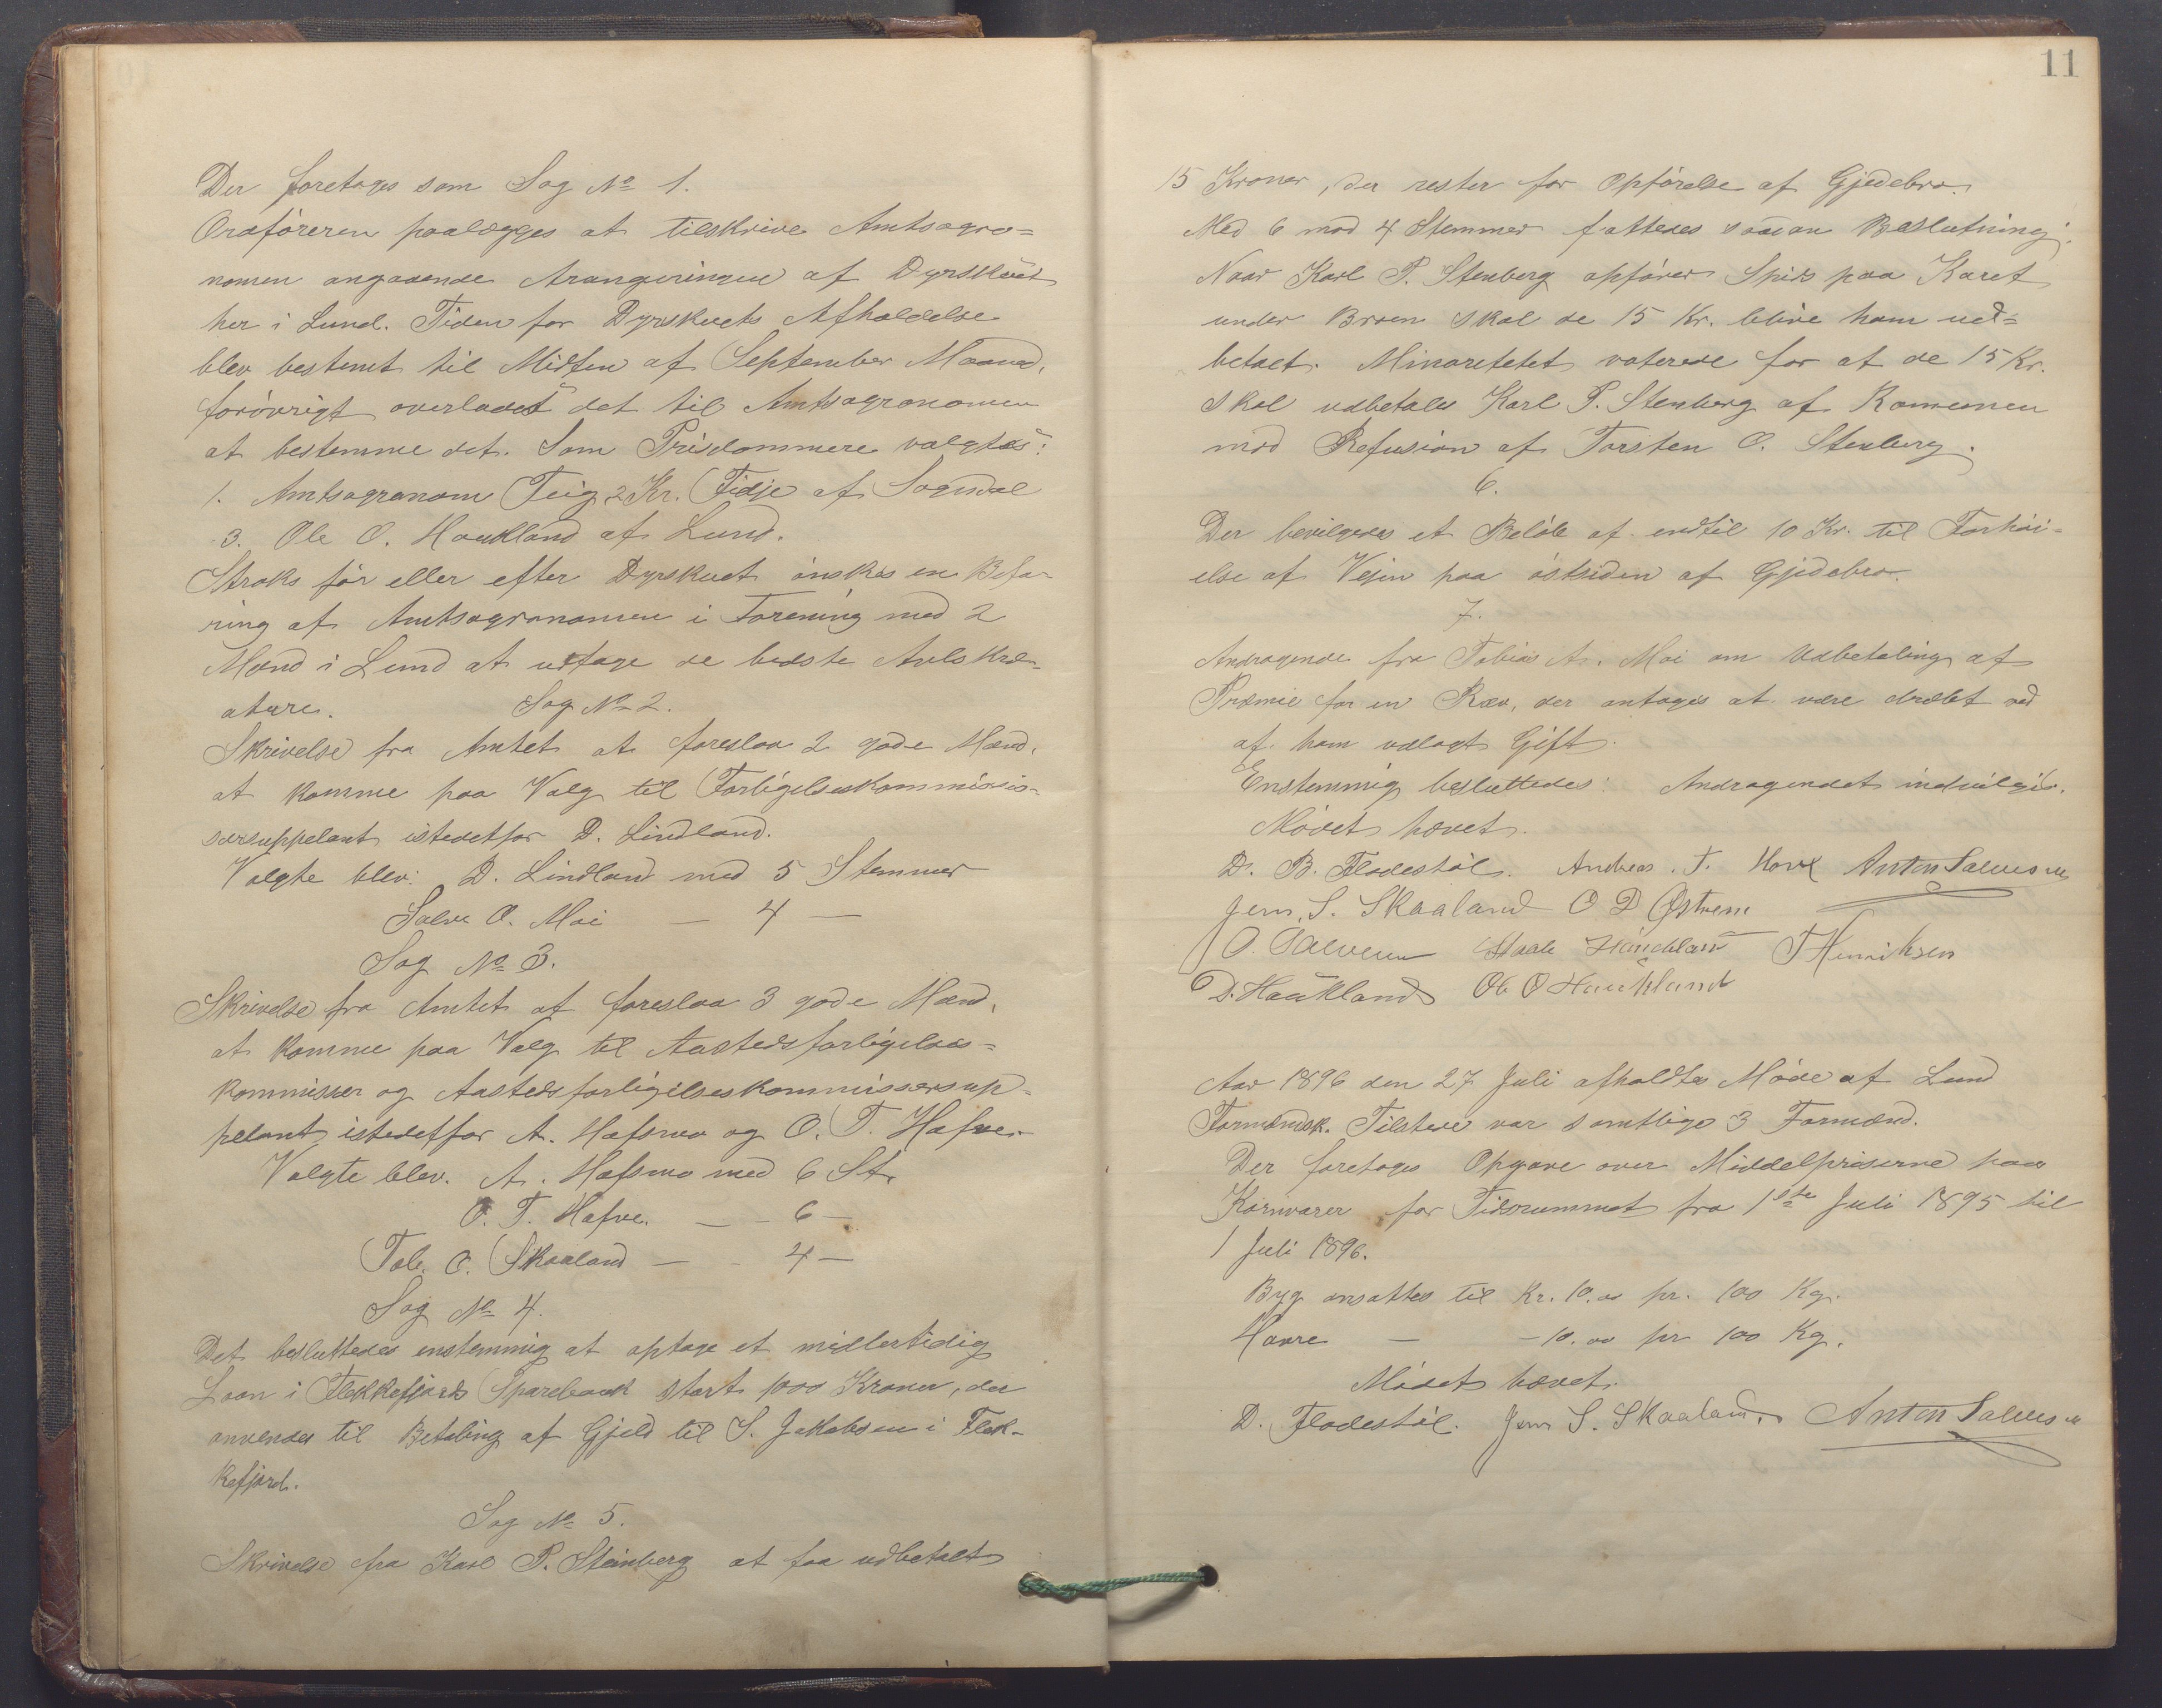 Der foretoges som Sag No 1.
Ordføreren paalægges at tilskrive Amtsagro=
nomen angaaende Arangeringen af Dyrskuet
her i Lund. Tiden for Dyrskuets Afholdelse
blev bestemt til Midten af September Maaned,
forøvrigt overlades det til Amtsagronomen
at bestemme det. Som Prisdommere valgtes:
1. Amtsagronom Teig 2 Kr. Fidje af Sogndal
3. Ole O. Haukland af Lund.
Straks før eller efter Dyrskuet ønskes en Befa-
ring af Amtsagronomen i Forening med 2
Mænd i Lund at udtage de bedste Avlskre-
ature. Sag No 2.
Skrivelse fra Amtet at foreslaa 2 gode Mænd,
at komme paa Valg til Forligelseskommissis-
særsuppelant istedetfor D. Lindland.
Valgte blev: D. Lindland med 5 Stemmer
Salve O. Moi — 4 —
Sag No 3.
Skrivelse fra Amtet at foreslaa 3 gode Mænd,
at komme paa Valg til Aastedsforligelses=
kommissær og Aastedsforligelseskommissærsup=
pelant, istedetfor A. Hafsmo og O. T. Hafve.
Valgte blev. A. Hafsmo med 6 St.
O. T. Hafve. — - 6 —
Tob. O. Skaaland — - 4 —
Sag No 4.
Det besluttedes enstemmig at optage et midlertidig
Laan i Flekkefjords Sparebank stort 1000 Kroner, der
anvendes til Betaling af Gjeld til S. Jakobsen i Flek-
kefjord.
Sag No 5.
Skrivelse fra Karl P. Steinberg at faa udbetalt
11
15 Kroner, der rester for Opførelse af Gjedebro.
Med 6 mod 4 Stemmer fattedes saadan Beslutning:
Naar Karl P. Stenberg opfører Spids paa Karet
under Broen skal de 15 Kr. blive ham ud=
betalt. Minoritetet voterede for at de 15 Kr.
skal udbetales Karl P. Stenberg af Komunen
mod Refusion af Torsten O. Stenberg.
6.
Der bevilgedes et Beløb af indtil 10 Kr. til Forhøi-
else af Veien paa østsiden af Gjedebro.
7.
Andragende fra Tobias A. Moi om Udbetaling af
Præmie for en Ræv, der antages at være dræbt ved
af ham udlagt Gift.
Enstemmig besluttedes: Andragendet indvilges.
Mødet hævet.
D. B. Flodestøl. Andreas . T. Hove Anton Salvesen
Jem. S. Skaaland O D Østrem
O. Salvesen Haukland T Henriksen
D. Haukland Ole O Haukland
Aar 1896 den 27 Juli afholdtes Møde af Lund
Formandsk. Tilstede var samtlige 3 Formænd.
Der foretoges Opgave over Middelpriserne paa
Kornvarer for Tidsrummet fra 1ste Juli 1895 til
1 Juli 1896.
Byg ansattes til Kr. 10.00 pr. 100 Kg.
Havre — - 10.00 pr 100 Kg.
Mødet hævet.
D. Flodestøl. Jem S. Skaaland. Anton Salvesen